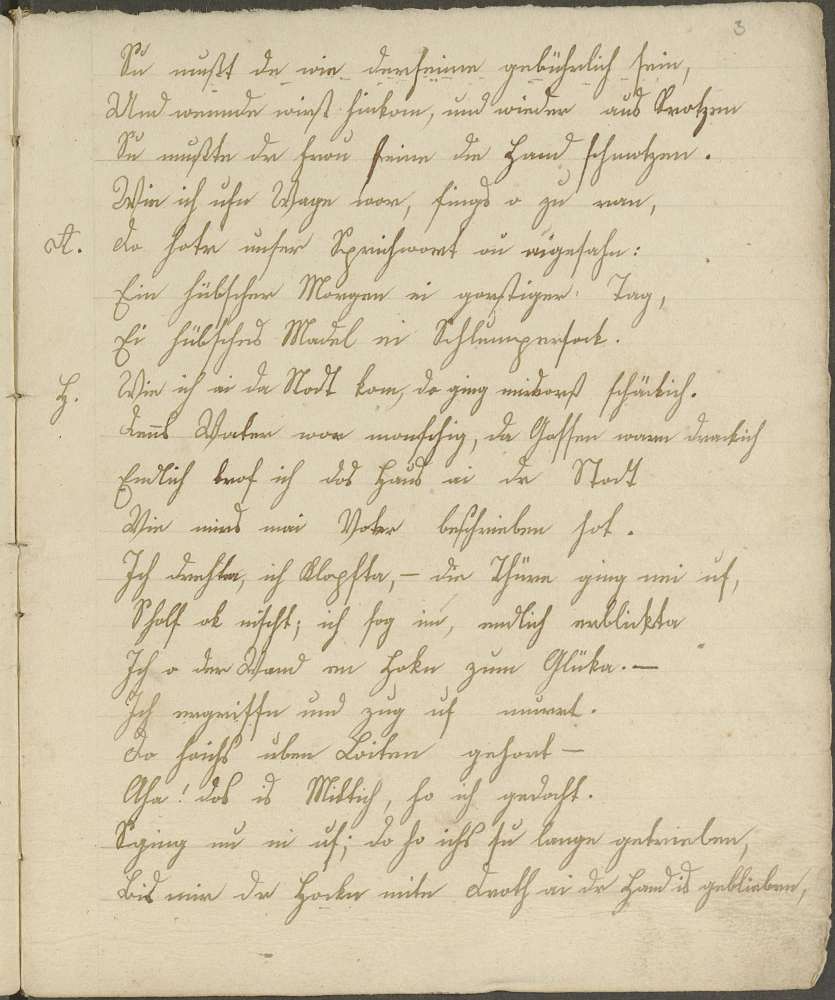 3
Su mußt du wie derheime gebührlich sein,
Und wennde wirst hinkom, und wieder aus Protzen
Su mußte dr Frou feine die Hand schmotzen.
Wie ich ufn Wage wor, fings o zu ran,
A. Do hotr unser Sprichwort ou eigesahn:
Ein hübscher Morgen ei gorstiger Tag,
Ei hübsches Madel ei Schlumpersock.
H. Wie ich ei da Stodt kom, do ging mirsorst schäckich.
Denns Water wor monschig, da Gossen warn drackich
Endlich trof ich dos Haus ei dr Stodt
Wie mirs mei Voter beschrieben hot.
Ich drehta, ich klopfta, – die Thüre ging nei uf,
S'holf ok nischt; ich sog im, endlich erblickta
Ich o der Wand en Hokn zum Glücka. –
Ich ergriffn und zug uf murrt.
Do hoichs uben Leiten gehort –
Aha! dos is Mittich, ho ich gedocht.
S'ging nu ni uf; do ho ichs su lange getrieben,
Bis mir dr Hockn mitn Droth ei dr Hand is geblieben,